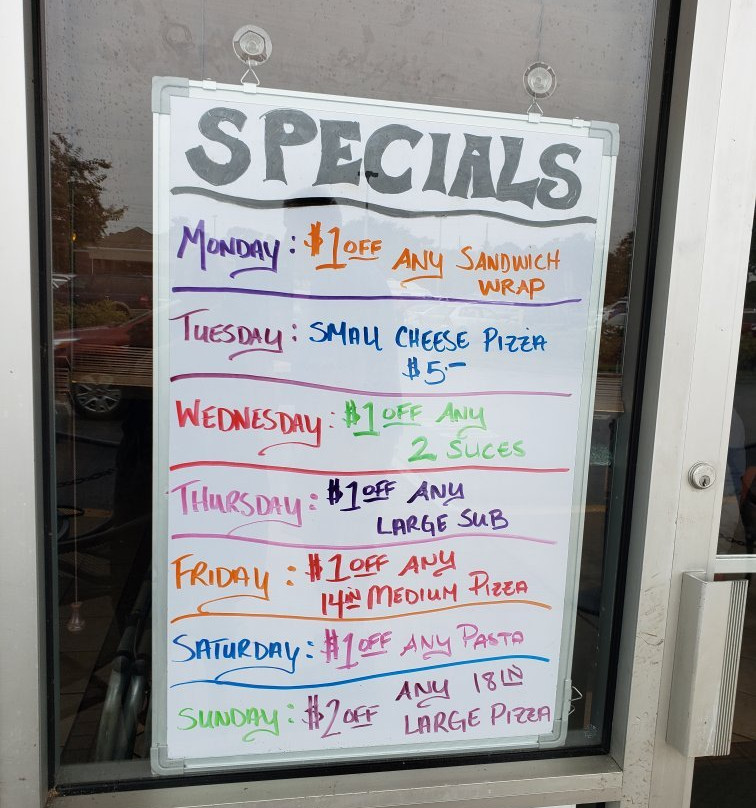 SPECIALS
MONDAY: $1 OFF ANY SANDWICH
WRAP
TUESDAY: SMALL CHEESE PIZZA
$5.-
WEDNESDAY: $1 OFF ANY
2 SLICES
THURSDAY: $1 OFF ANY
LARGE SUB
FRIDAY: $1 OFF ANY
14IN MEDIUM PIZZA
SATURDAY: $1 OFF ANY PASTA
SUNDAY: $2 OFF ANY 18IN
LARGE PIZZA